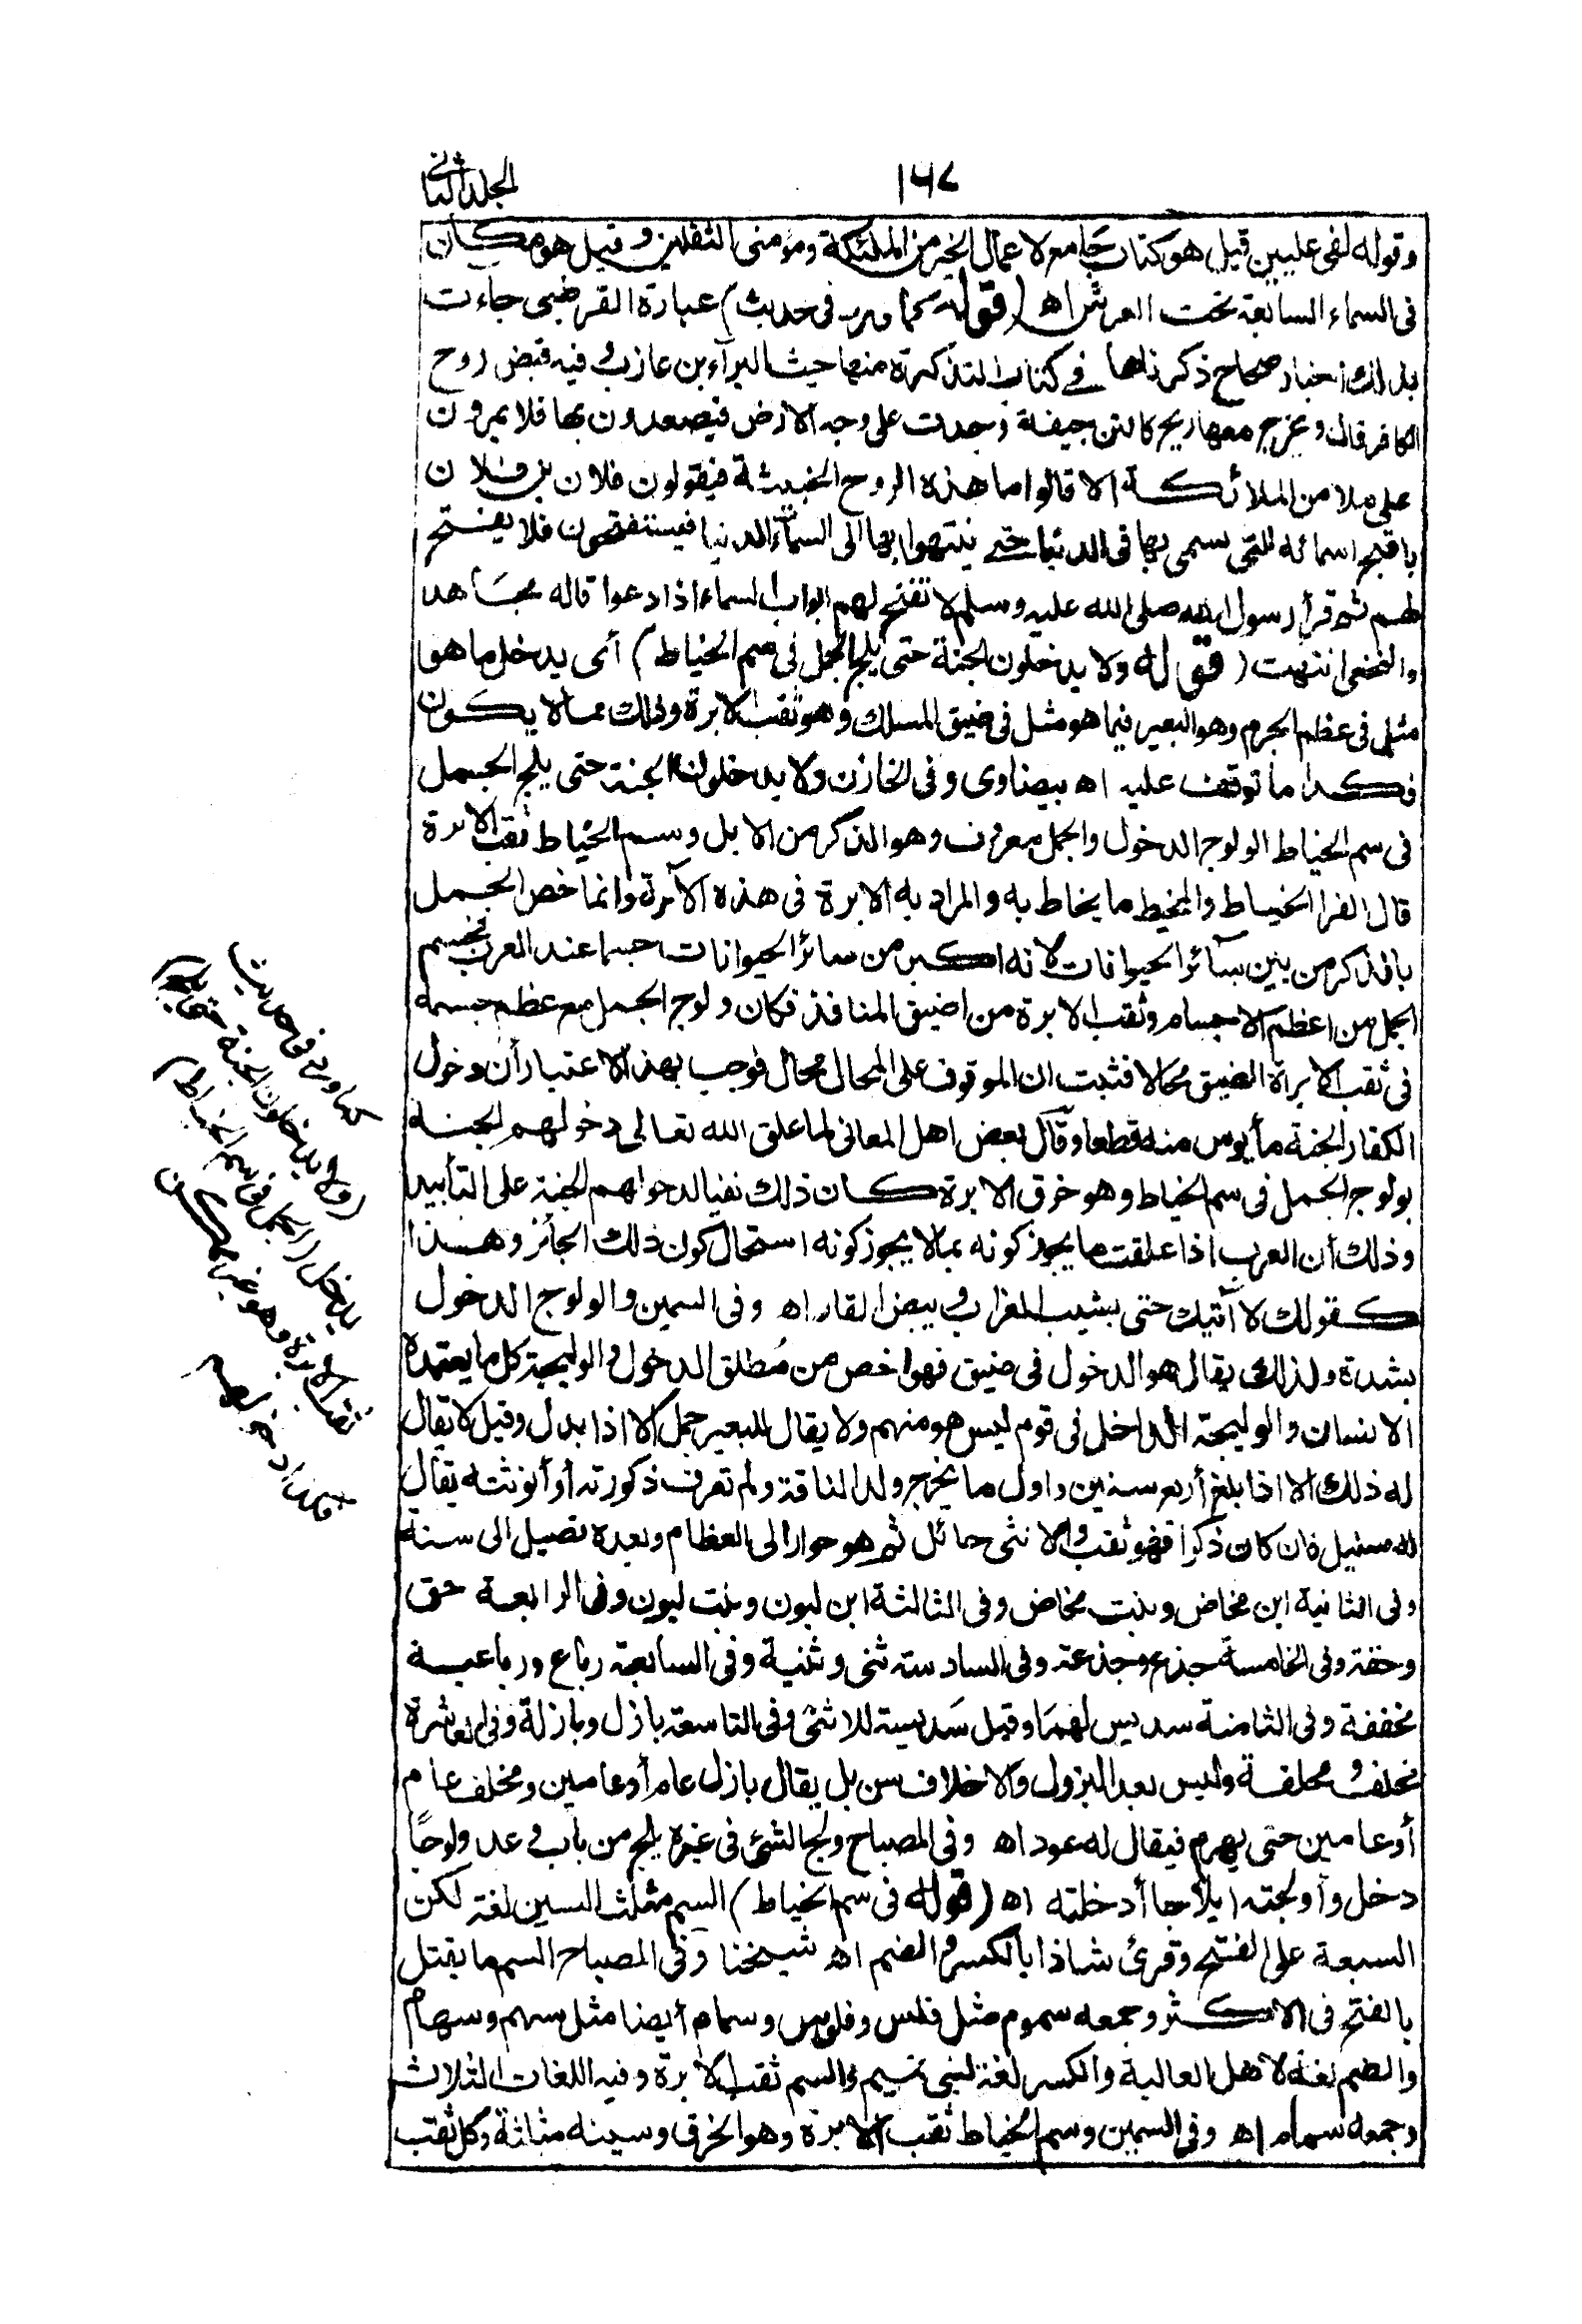 ١٦٧
الجلد الثانى
وقوله لفى عليين قيل هو كتاب جامع لاعمال الخير من الملئكة ومؤمنى الثقلين وقيل هو مكان
فى السماء السابعة تحت العرش اه (قوله كما ورد فى حديث) عبارة القرطبى جاءت
بذلك اخبار صحاح ذكرناها فى كتاب التذكرة منها حيث البرآء بن عازب وفيه قبض روح
الكافر قال وتخرج معها ريح كانتن جيفة وجدت على وجه الارض فيصعدون بها فلا يمرون
على ملا من الملائكة الا قالوا ما هذه الروح الخبيثة فيقولون فلان بن فلان
باقبح اسمائه التى يسمى بها فى الدنيا حتى ينتهوا بها الى السماء الدنيا فيستفتحون فلا يفتح
لهم ثم قرأ رسول الله صلى الله عليه وسلم لا تفتح لهم ابواب السماء اذا دعوا قاله مجاهد
والنخعى انتهت (قوله ولا يدخلون الجنة حتى يلج الجمل فى سم الخياط) أى يدخل ما هو
مثل فى عظم الجرم وهو البعير فيما هو مثل فى ضيق المسلك وهو ثقب الابرة وذلك مما لا يكون
فكذا ما توقف عليه اه بيضاوى وفى الخازن ولا يدخلون الجنة حتى يلج الجمل
فى سم الخياط الولوج الدخول والجمل معروف وهو الذكر من الابل وسم الخياط ثقب الابرة
قال الفرا الخياط والمخيط ما يخاط به والمراد به الابرة فى هذه الآية وانما خص الجمل
بالذكر من بين سائر الحيوانات لانه اكبر من سائر الحيوانات جسما عند العرب فجسم
الجمل من اعظم الاجسام وثقب الابرة من اضيق المنافذ فكان ولوج الجمل مع عظم جسمه
فى ثقب الابرة الضيق محالا فثبت ان الموقوف على المحال محال فوجب بهذا الاعتبار أن دخول
الكفار الجنة مأيوس منه قطعا وقال بعض اهل المعانى لما علق الله تعالى دخولهم الجنة
بولوج الجمل فى سم الخياط وهو خرق الابرة كان ذلك نفيا لدخولهم الجنة على التأبيد
وذلك أن العرب اذا علقت ما يجوز كونه بمالا يجوز كونه استحال كون ذلك الجائز وهذا
كقولك لا آتيك حتى يشيب الغراب ويبيض القار اه وفى السمين والولوج الدخول
بشدة ولذلك يقال هو الدخول فى ضيق فهو اخص من مطلق الدخول والوليجة كل ما يعتمده
الانسان والوليجة الداخل فى قوم ليس هو منهم ولا يقال للبعير جمل الا اذا بزل وقيل لا يقال
له ذلك الا اذا بلغ أربع سنين واول ما يخرج ولد الناقة ولم تعرف ذكورته أو أنوثته يقال
له سليل فان كان ذكرا فهو ثقب والانثى حائل ثم هو حوار الى العظام وبعده فصيل الى سنة
وفى الثانية ابن مخاض وبنت مخاض وفى الثالثة ابن لبون وبنت لبون وفى الرابعة حق
وحقة وفى الخامسة جذع وجذعة وفى السادسة ثنى وثنية وفى السابعة رباع ورباعية
مخففة وفى الثامنة سديس لهما وقيل سديسة للانثى وفى التاسعة بازل وبازلة وفى العاشرة
مخلف ومخلفة وليس بعد البزول والاخلاف سن بل يقال بازل عام أو عامين ومخلف عام
أو عامين حتى يهرم فيقال له عود اه وفى المصباح ولج الشئ فى غيره يلج من باب وعد ولوجًا
دخل وأولجته ايلاجا أدخلته اه (قوله فى سم الخياط) السم مثلث السين لغة لكن
السبعة على الفتح وقرئ شاذا بالكسر والضم اه شيخنا وفى المصباح السم ما يقتل
بالفتح فى الاكثر وجمعه سموم مثل فلس وفلوس وسمام أيضا مثل سهم وسهام
والضم لغة لاهل العالية والكسر لغة لبنى تميم والسم ثقب الابرة وفيه اللغات الثلاث
وجمعه سمام اه وفى السمين وسم الخياط ثقب الابرة وهو الخرق وسينه مثلثة وكل ثقب
كما ورد فى حديث
(ولا يدخلون الجنة حتى يلج)
يدخل (الجمل فى سم الخياط)
ثقب الابرة وهو غير ممكن